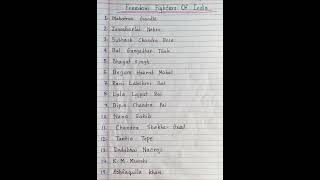 Freedom Fighters Of India
1. Mahatma Gandhi
2. Jawaharlal Nehru
3. Subhash Chandra Bose
4. Bal Gangadhar Tilak
5. Bhagat Singh
6. Begum Hazrat Mahal
7. Rani Lakshmi Bai
8. Lala Lajpat Rai
9. Bipin Chandra Pal
10. Nana Sahib
11. Chandra Shekhar Azad
12. Tantia Tope
13. Dadabhai Naoroji
14. K. M. Munshi
15. Ashfaqulla Khan